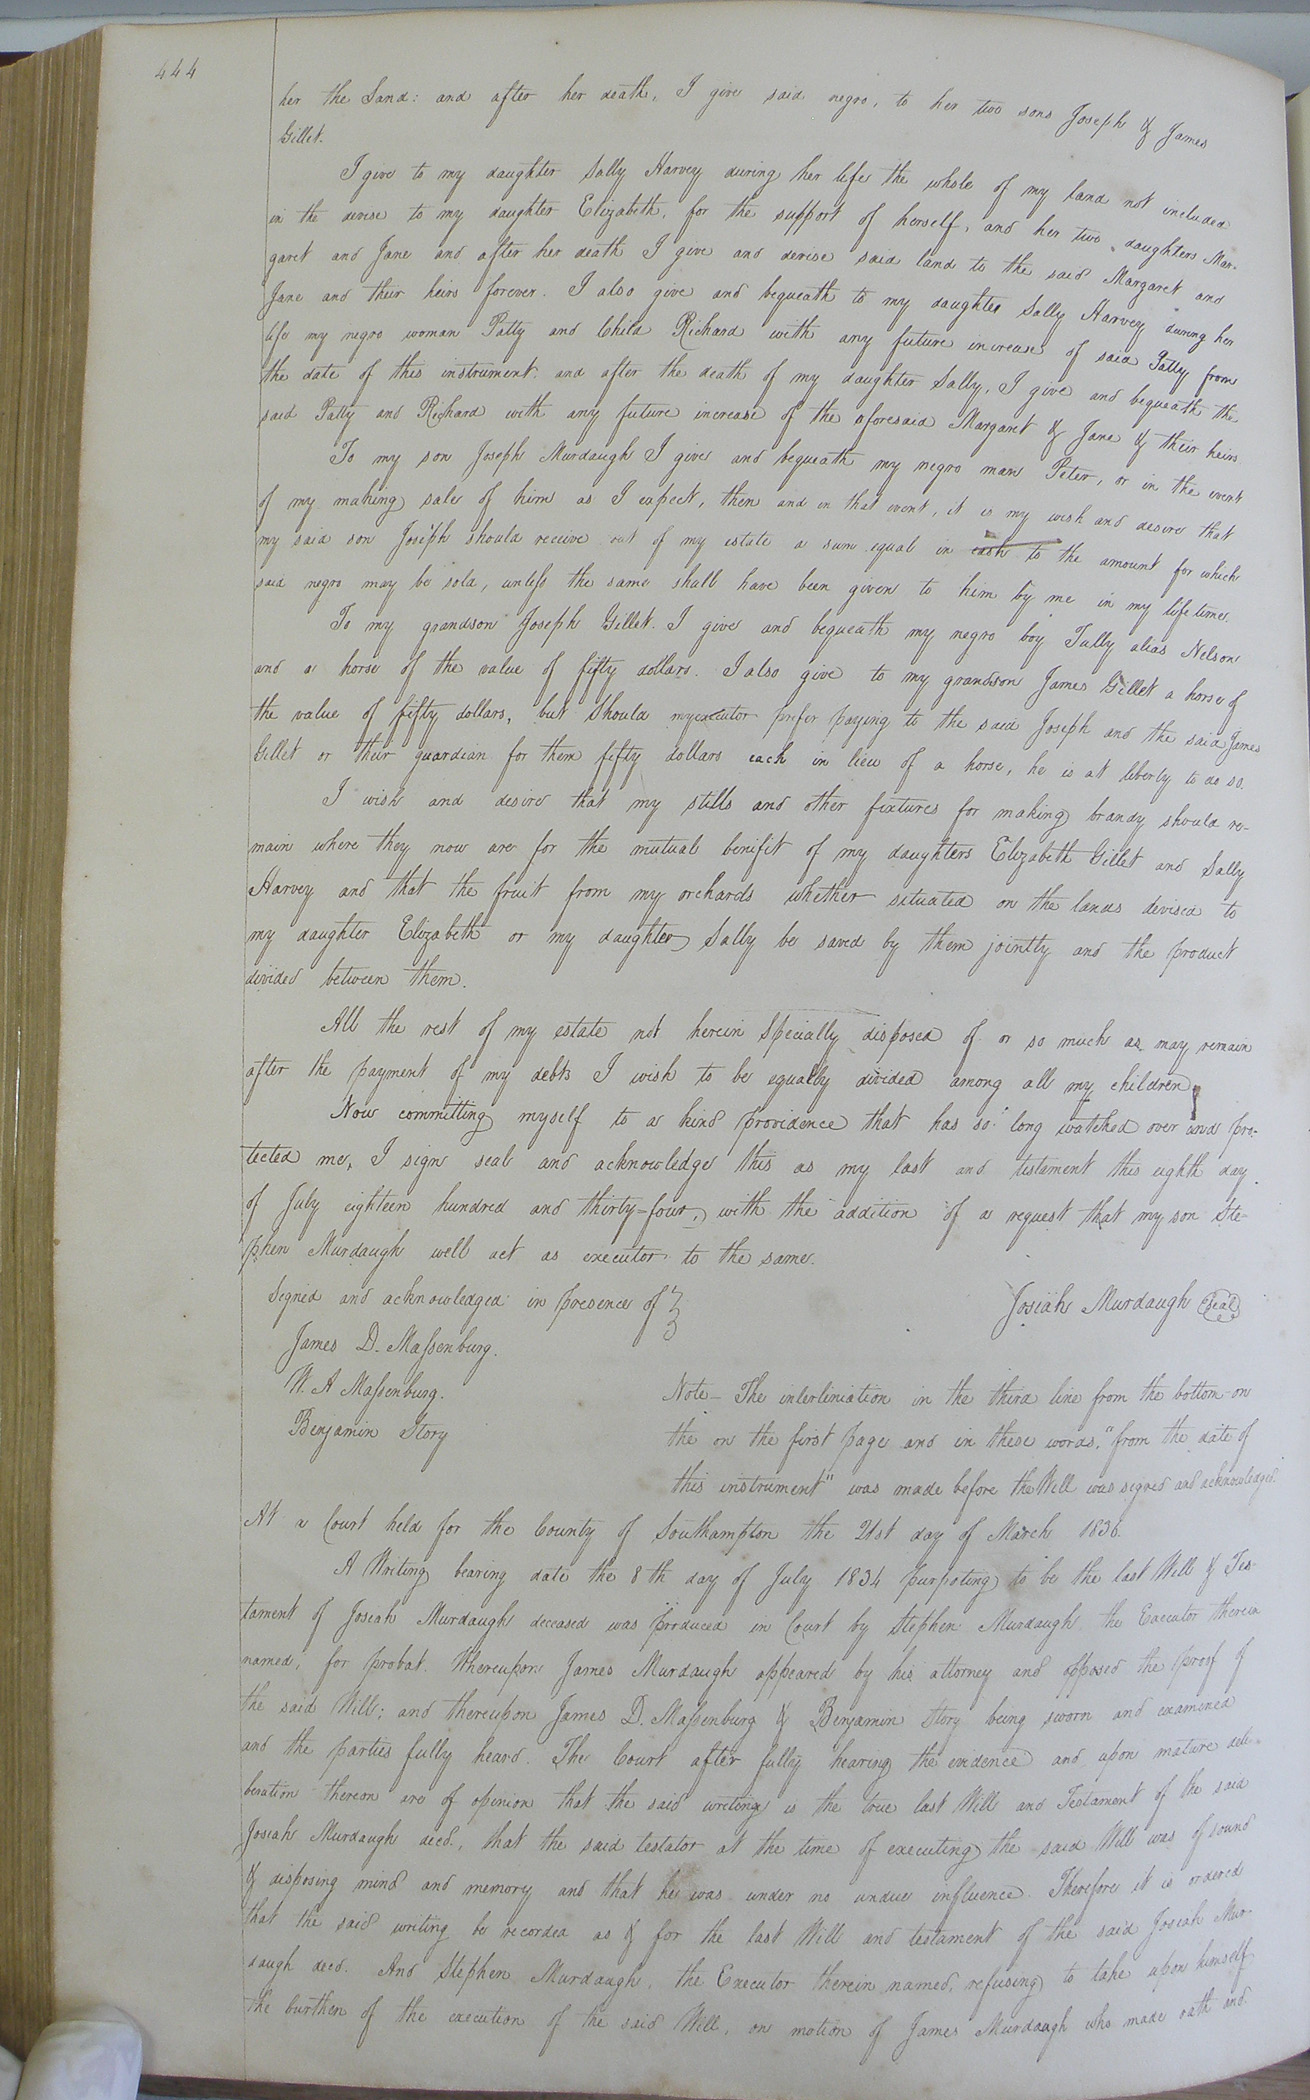 444
her the Land: and after her death, I give said negro, to her two sons Joseph & James
Gillet.
I give to my daughter Sally Harvey during her life the whole of my land not included
in the devise to my daughter Elizabeth, for the support of herself, and her two daughters Mar-
garet and Jane and after her death I give and devise said land to the said Margaret and
Jane and their heirs forever. I also give and bequeath to my daughter Sally Harvey during her
life my negro woman Patty and Child Richard with any future increase of said Patty from
the date of this instrument. and after the death of my daughter Sally, I give and bequeath the
said Patty and Richard with any future increase of the aforesaid Margaret & Jane & their heirs
To my son Joseph Murdaugh I give and bequeath my negro man Peter, or in the event
of my making sale of him as I expect, then and in that event, it is my wish and desire that
my said son Joseph should receive out of my estate a sum equal in cash to the amount for which
said negro may be sold, unless the same shall have been given to him by me in my lifetime.
To my grandson Joseph Gillet. I give and bequeath my negro boy Tully alias Nelson
and a horse of the value of fifty dollars. I also give to my grandson James Gillet a horse of
the value of fifty dollars, but should my executor prefer paying to the said Joseph and the said James
Gillet or their guardian for them fifty dollars each in lieu of a horse, he is at liberty to do so.
I wish and desire that my stills and other fixtures for making brandy should re-
main where they now are for the mutual benifit of my daughters Elizabeth Gillet and Sally
Harvey and that the fruit from my orchards whether situated on the lands devised to
my daughter Elizabeth or my daughter Sally be saved by them jointly and the product
divided between them.
All the rest of my estate not herein Specially disposed of or so much as may remain
after the payment of my debts I wish to be equally divided among all my children,
Now committing myself to a kind providence that has so long watched over and pro-
tected me, I sign seal and acknowledge this as my last and testament this eighth day
of July eighteen hundred and thirty-four, with the addition of a request that my son Ste-
phen Murdaugh well act as executor to the same.
Signed and acknowledged in presence of } Josiah Murdaugh Seal
James D. Massenburg.
W. A Massenburg.
Benjamin Story
Note- The interliniation in the third line from the bottom on
the on the first page and in these words, "from the date of
this instrument" was made before the Will was signed and acknowledged.
At a Court held for the County of Southampton the 21st day of March 1836.
A Writing bearing date the 8th day of July 1834 purpoting to be the last Will & Tes-
tament of Josiah Murdaugh deceased was produced in Court by Stephen Murdaugh the Executor therein
named, for probat. Whereupon James Murdaugh appeared by his attorney and opposed the proof of
the said Will; and thereupon James D. Massenburg & Benjamin Story being sworn and examined
and the parties fully heard. The Court after fully hearing the evidence and upon mature deli-
beration thereon are of opinion that the said writing is the true last Will and Testament of the said
Josiah Murdaugh decd., that the said testator at the time of executing the said Will was of sound
& disposing mind and memory and that he was under no undue influence. Therefore it is ordered
that the said writing be recorded as & for the last Will and testament of the said Josiah Mur-
daugh decd. And Stephen Murdaugh, the Executor therein named, refusing to take upon himself
the burthen of the execution of the said Will, on motion of James Murdaugh who made oath and